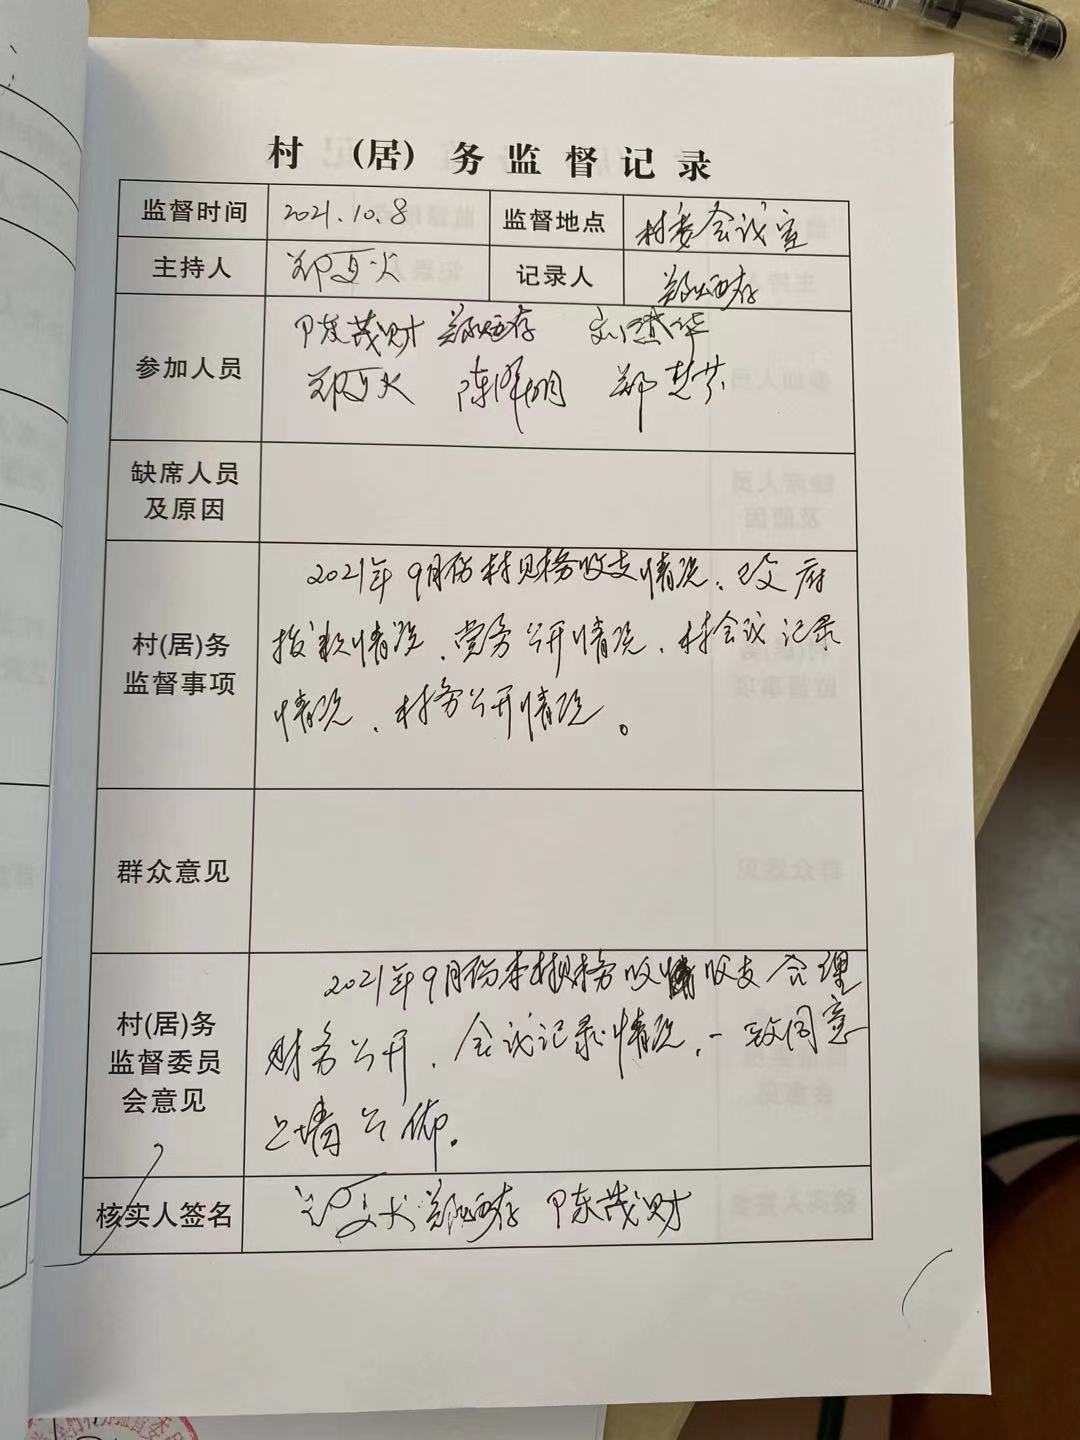 村 (居) 务监督记录
监督时间 2021.10.8 监督地点 村委会议室
主持人 记录人
参加人员
陈茂财
陈泽明 郑楚芬
缺席人员
及原因
村(居)务
监督事项
2021年9月份村财务收支情况、政府
拨款情况、党务公开情况、村会议记录
情况、村务公开情况。
群众意见
村(居)务
监督委员
会意见
2021年9月份本村财务收 收支合理
财务公开、会议记录情况,一致同意
上墙公佈。
核实人签名 陈茂财